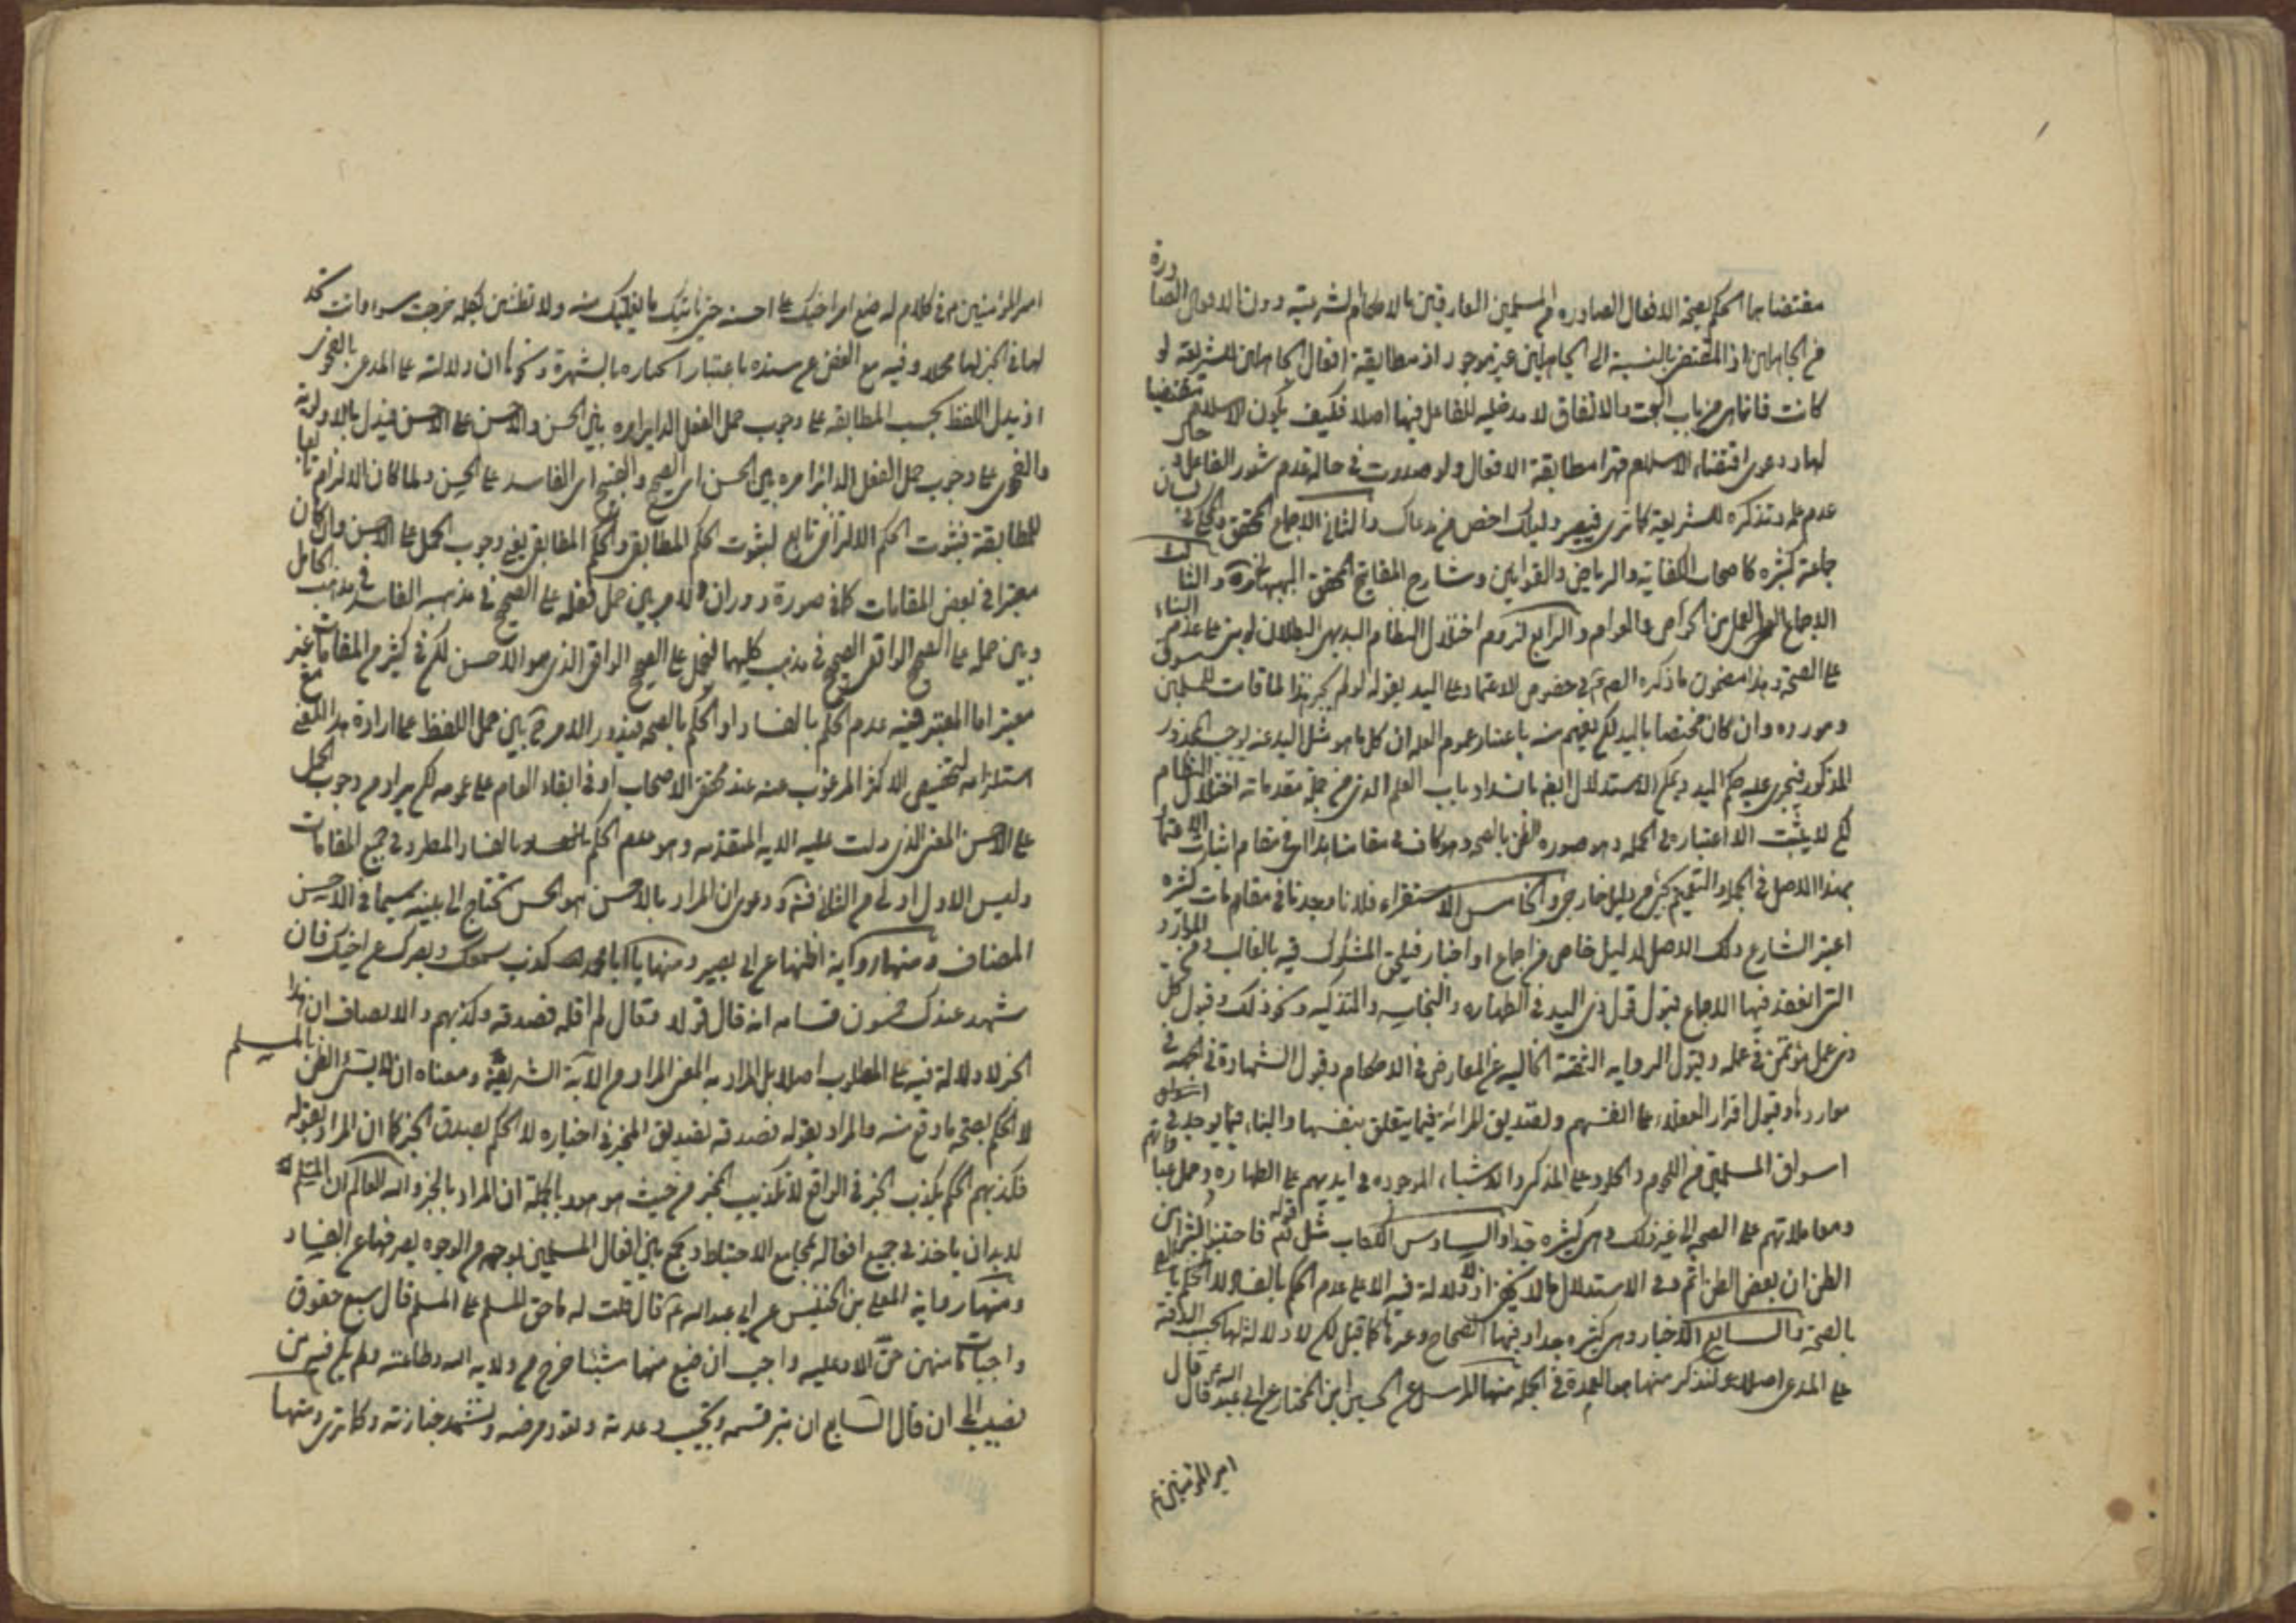 مقتضا بها الحكم بصحة الافعال الصادرة من المسلمين العارفين بالاحكام الشرعية دون الافعال الصادرة
من الجاهلين اذ المقتضى بالنسبة الى الجاهلين غير موجود اذ مطابقة افعال الجاهلين للشريعة لو
كانت فانما هي من باب البخت والاتفاق لا مدخلية للفاعل فيها اصلا فكيف يكون الاسلام مقتضيا
لها ودعوى اقتضاء الاسلام قهرا مطابقة الافعال ولو صدرت في حالة عدم شعور الفاعل و حال
عدم علمه وتذكره للشريعة كما ترى فيصير دليلك اخص من مدعاك والثاني الاجماع المحقق والمحكي في لسان
جماعة كثيرة كاصحاب الكفاية والرياض والقوانين وشارح المفاتيح المحقق البهبهاني وغيره والثالث
الاجماع العملي بين الخواص والعوام والرابع لزوم اختلال النظام البديهي البطلان لو بنى على عدم البناء
على الصحة وهذا مضمون ما ذكره المعصوم في خصوص الاعتماد على اليد بقوله لو لم يجز هذا لما قامت للمسلمين سوق
ومورده وان كان مختصا باليد لكن يفهم منه باعتبار عموم العلة ان كل ما هو مثل اليد عند لوجب المحذور
المذكور فيجري عليه حكم اليد ويمكن الاستدلال ايضا بانسداد باب العلم الذي من جملة مقدماته اختلال النظام
لكن لا يثبت الا اعتباره في الجملة وهو صورة الظن بالصحة وهو كاف في مقامنا هذا اي في مقام اثبات الاعتماد
بهذا الاصل في الجملة والتعميم يحتاج بدليل خارجي والخامس الاستقراء فلانا وجدنا في مقامات كثيرة
اعتبر الشارع ذلك الاصل لدليل خاص من اجماع او اخبار فيلحق المشكوك فيه بالغالب فمن الموارد
التي انعقد فيها الاجماع قبول قول ذي اليد في الطهارة والنجاسة والتذكية ونحو ذلك وقبول كل
ذي عمل مؤتمن في عمله وقبول الرواية الثقة الخالية عن المعارض في الاحكام وقبول الشهادة في الجملة في
مواردها وقبول اقرار العقلاء على انفسهم ولتصديق المرائة فيما يتعلق بنفسها والبناء فيما يوجد في اسواق
اسواق المسلمين من اللحوم والجلود على المذكى والاشياء الموجودة في ايديهم على الطهارة وحمل عباداتهم
ومعاملاتهم على الصحة الى غير ذلك وهي كثيرة جدا والسادس الكتاب مثل قوله تعالى فاجتنبوا كثيرا من
الظن ان بعض الظن اثم وفي الاستدلال ما لا يخفى اذ لا دلالة فيه الا على عدم الحكم بالفساد لا الحكم
بالصحة والسابع الاخبار وهي كثيرة جدا وفيها الصحاح وغيرها كما قيل لكن لا دلالة لها بحسب الدقة
على المدعى اصلا ولنذكر منها ما هو العمدة في الجملة منها المرسل عن الحسين ابن المختار عن ابي عبد الله قال قال
امير المؤمنين ع
امير المؤمنين ع في كلام له ضع امر اخيك على احسنه حتى ياتيك ما يقلبك منه ولا تظنن بكلمة خرجت سوءا وانت تجد
لها في الخير لها محملا وفيه مع الغض عن سنده باعتبار انجباره بالشهرة ونحوها ان دلالته على المدعى بالفحوى
اذ يدل اللفظ بحسب المطابقة على وجوب حمل الفعل الدائر امره بين الحسن والاحسن على الاحسن فيدل بالاولوية
والفحوى على وجوب حمل الفعل الدائر امره بين الحسن اي الصحيح والقبيح اي الفاسد على الحسن ولما كان الالتزام تابعا
للمطابقة فثبوت الحكم الالتزامي تابع لثبوت الحكم المطابقي والحكم المطابقي يعني وجوب الحمل على الاحسن وان كان
معتبرا في بعض المقامات كما في صورة دوران الامر بين حمل فعله على الصحيح في مذهبه الفاسد في مذهب الحامل
وبين حمله على الصحيح الواقعي الصحيح في مذهب كليهما فيحمل على الصحيح الواقعي الذي هو الاحسن لكن في كثير من المقامات غير
معتبر اما المعتبر فيه عدم الحكم بالفساد او الحكم بالصحة فيدور الامر بين حمل اللفظ على ارادة هذا المعنى مع
استلزامه لتخصيص الاكثر المرغوب عنه عند محققي الاصحاب او في ابقاء العام على عمومه لكن يراد من وجوب الحمل
على الاحسن المعنى الذي دلت عليه الاية المتقدمة وهو عدم الحكم بالفساد المطرد في جميع المقامات
وليس الاول اولى من الثاني فت ودعوى ان المراد بالاحسن هو الحسن تحتاج الى بينة سيما في الاحسن
المضاف ومنها رواية اظنها عن ابي بصير ومنها يا ابا محمد كذب سمعك وبصرك عن اخيك فان
شهد عندك خمسون قسامة انه قال قولا وقال لم اقله فصدقه وكذبهم والانصاف ان هذا
الخبر لا دلالة فيه على المطلوب اصلا بل المراد به المعنى المراد من الآية الشريفة ومعناه ان لا يسيئ الظن بالمسلم
لا الحكم بصحة ما وقع منه والمراد بقوله فصدقه تصديق المخبر في اخباره لا الحكم بصدق الخبر كما ان المراد بقوله
فكذبهم الحكم بكذب الخبر في الواقع لا تكذيب المخبر من حيث هو هو وبالجملة ان المراد بالخبر والله العالم ان المسلم
لا بد ان ياخذ في جميع افعاله بمجامع الاحتياط ويجمع بين افعال المسلمين بوجه من الوجوه يصرفها عن الفساد
ومنها رواية المعلى بن الخنيس عن ابي عبد الله ع قال قلت له ما حق المسلم على المسلم قال سبع حقوق
واجبات ما منهن حق الا وعليه واجب ان ضيع منها شيئا خرج من ولاية الله وطاعته ولم يكن فيه من
نصيب الى ان قال السابع ان تبر قسمه وتجيب دعوته وتعود مرضه وتشهد جنازته وكما ترى ومنها